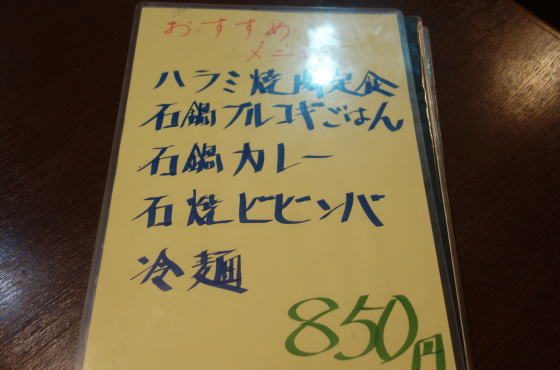 おすすめ
メニュー
ハラミ焼肉定食
石鍋プルコギごはん
石鍋カレー
石焼ビビンバ
冷麺
850円